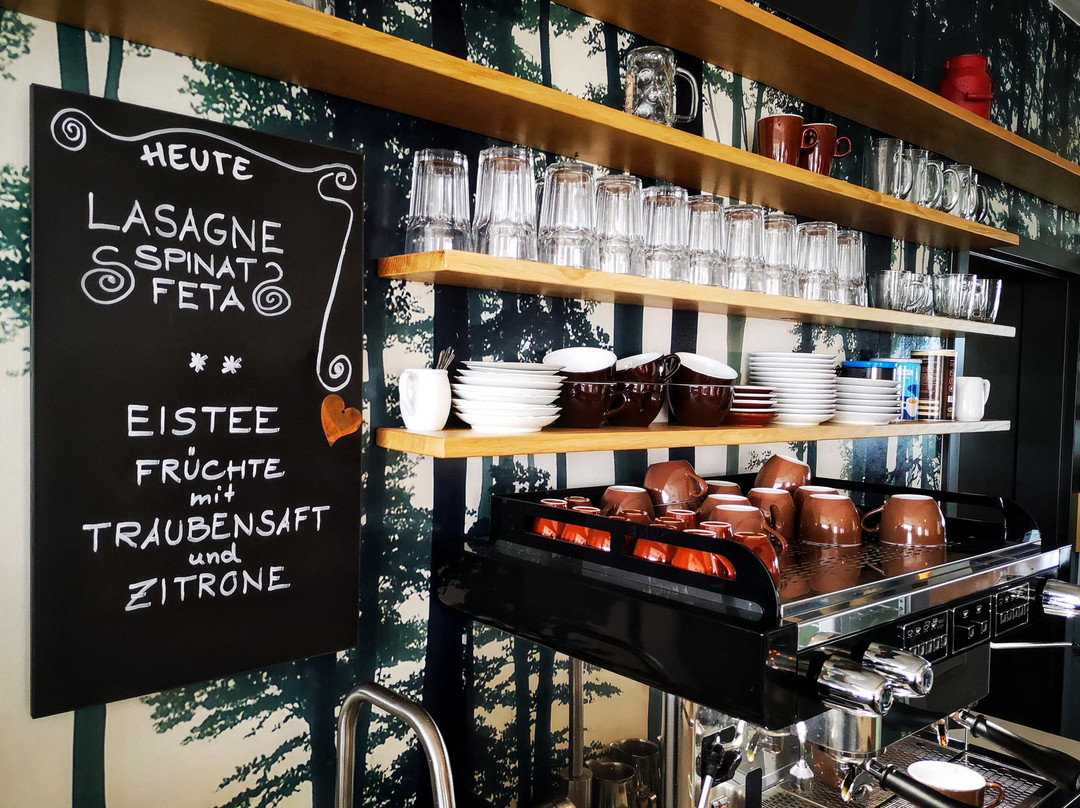 HEUTE
LASAGNE
SPINAT
FETA
EISTEE
FRÜCHTE
mit
TRAUBENSAFT
und
ZITRONE